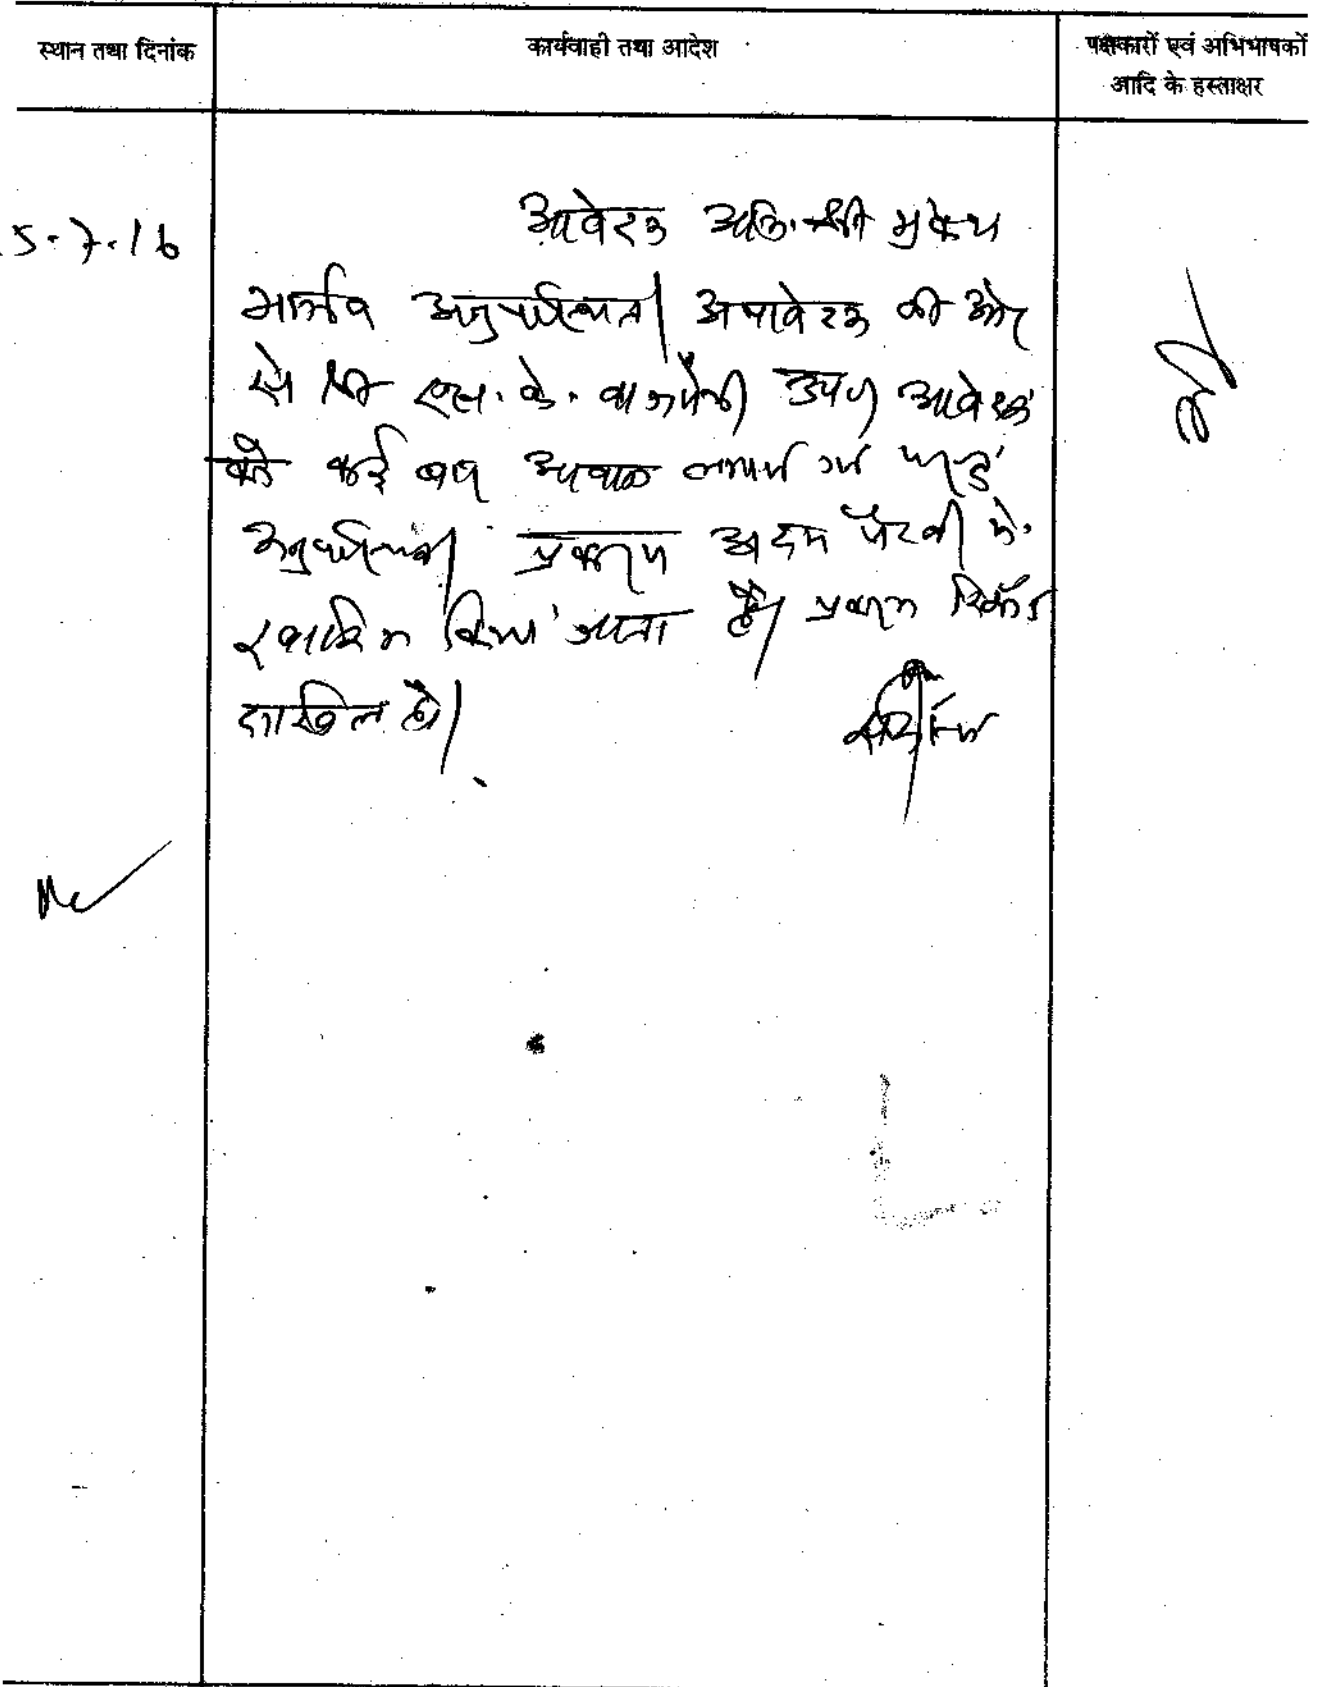 स्थान तथा दिनांक
कार्यवाही तथा आदेश
पक्षकारों एवं अभिभाषकों
आदि के हस्ताक्षर
5.7.16
आवेदक अभि. श्री मुकेश
भार्गव अनुपस्थित। अनावेदक की ओर
से श्री एस. के. वाजपेयी उप0 आवेदक
को कई बार आवाज लगाई गई परन्तु
अनुपस्थित। प्रकरण अदम पैरवी में
खारिज किया जाता है। प्रकरण रिकॉर्ड
दाखिल हो।